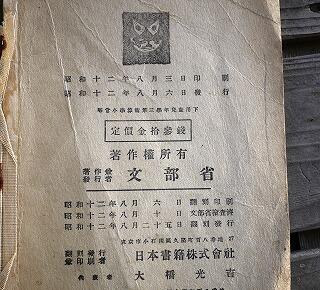 昭和十二年八月三日印刷
昭和十二年八月六日發行
尋常小學算術第三學年兒童用下
定價金拾參錢
著作權所有
著作兼發行者 文部省
昭和十二年八月六日飜刻印刷
昭和十二年八月十日文部省檢査濟
昭和十二年八月二十五日飜刻發行
東京市小石川區久堅町百八番地
飜刻發行兼印刷者 日本書籍株式會社
代表者 大橋光吉